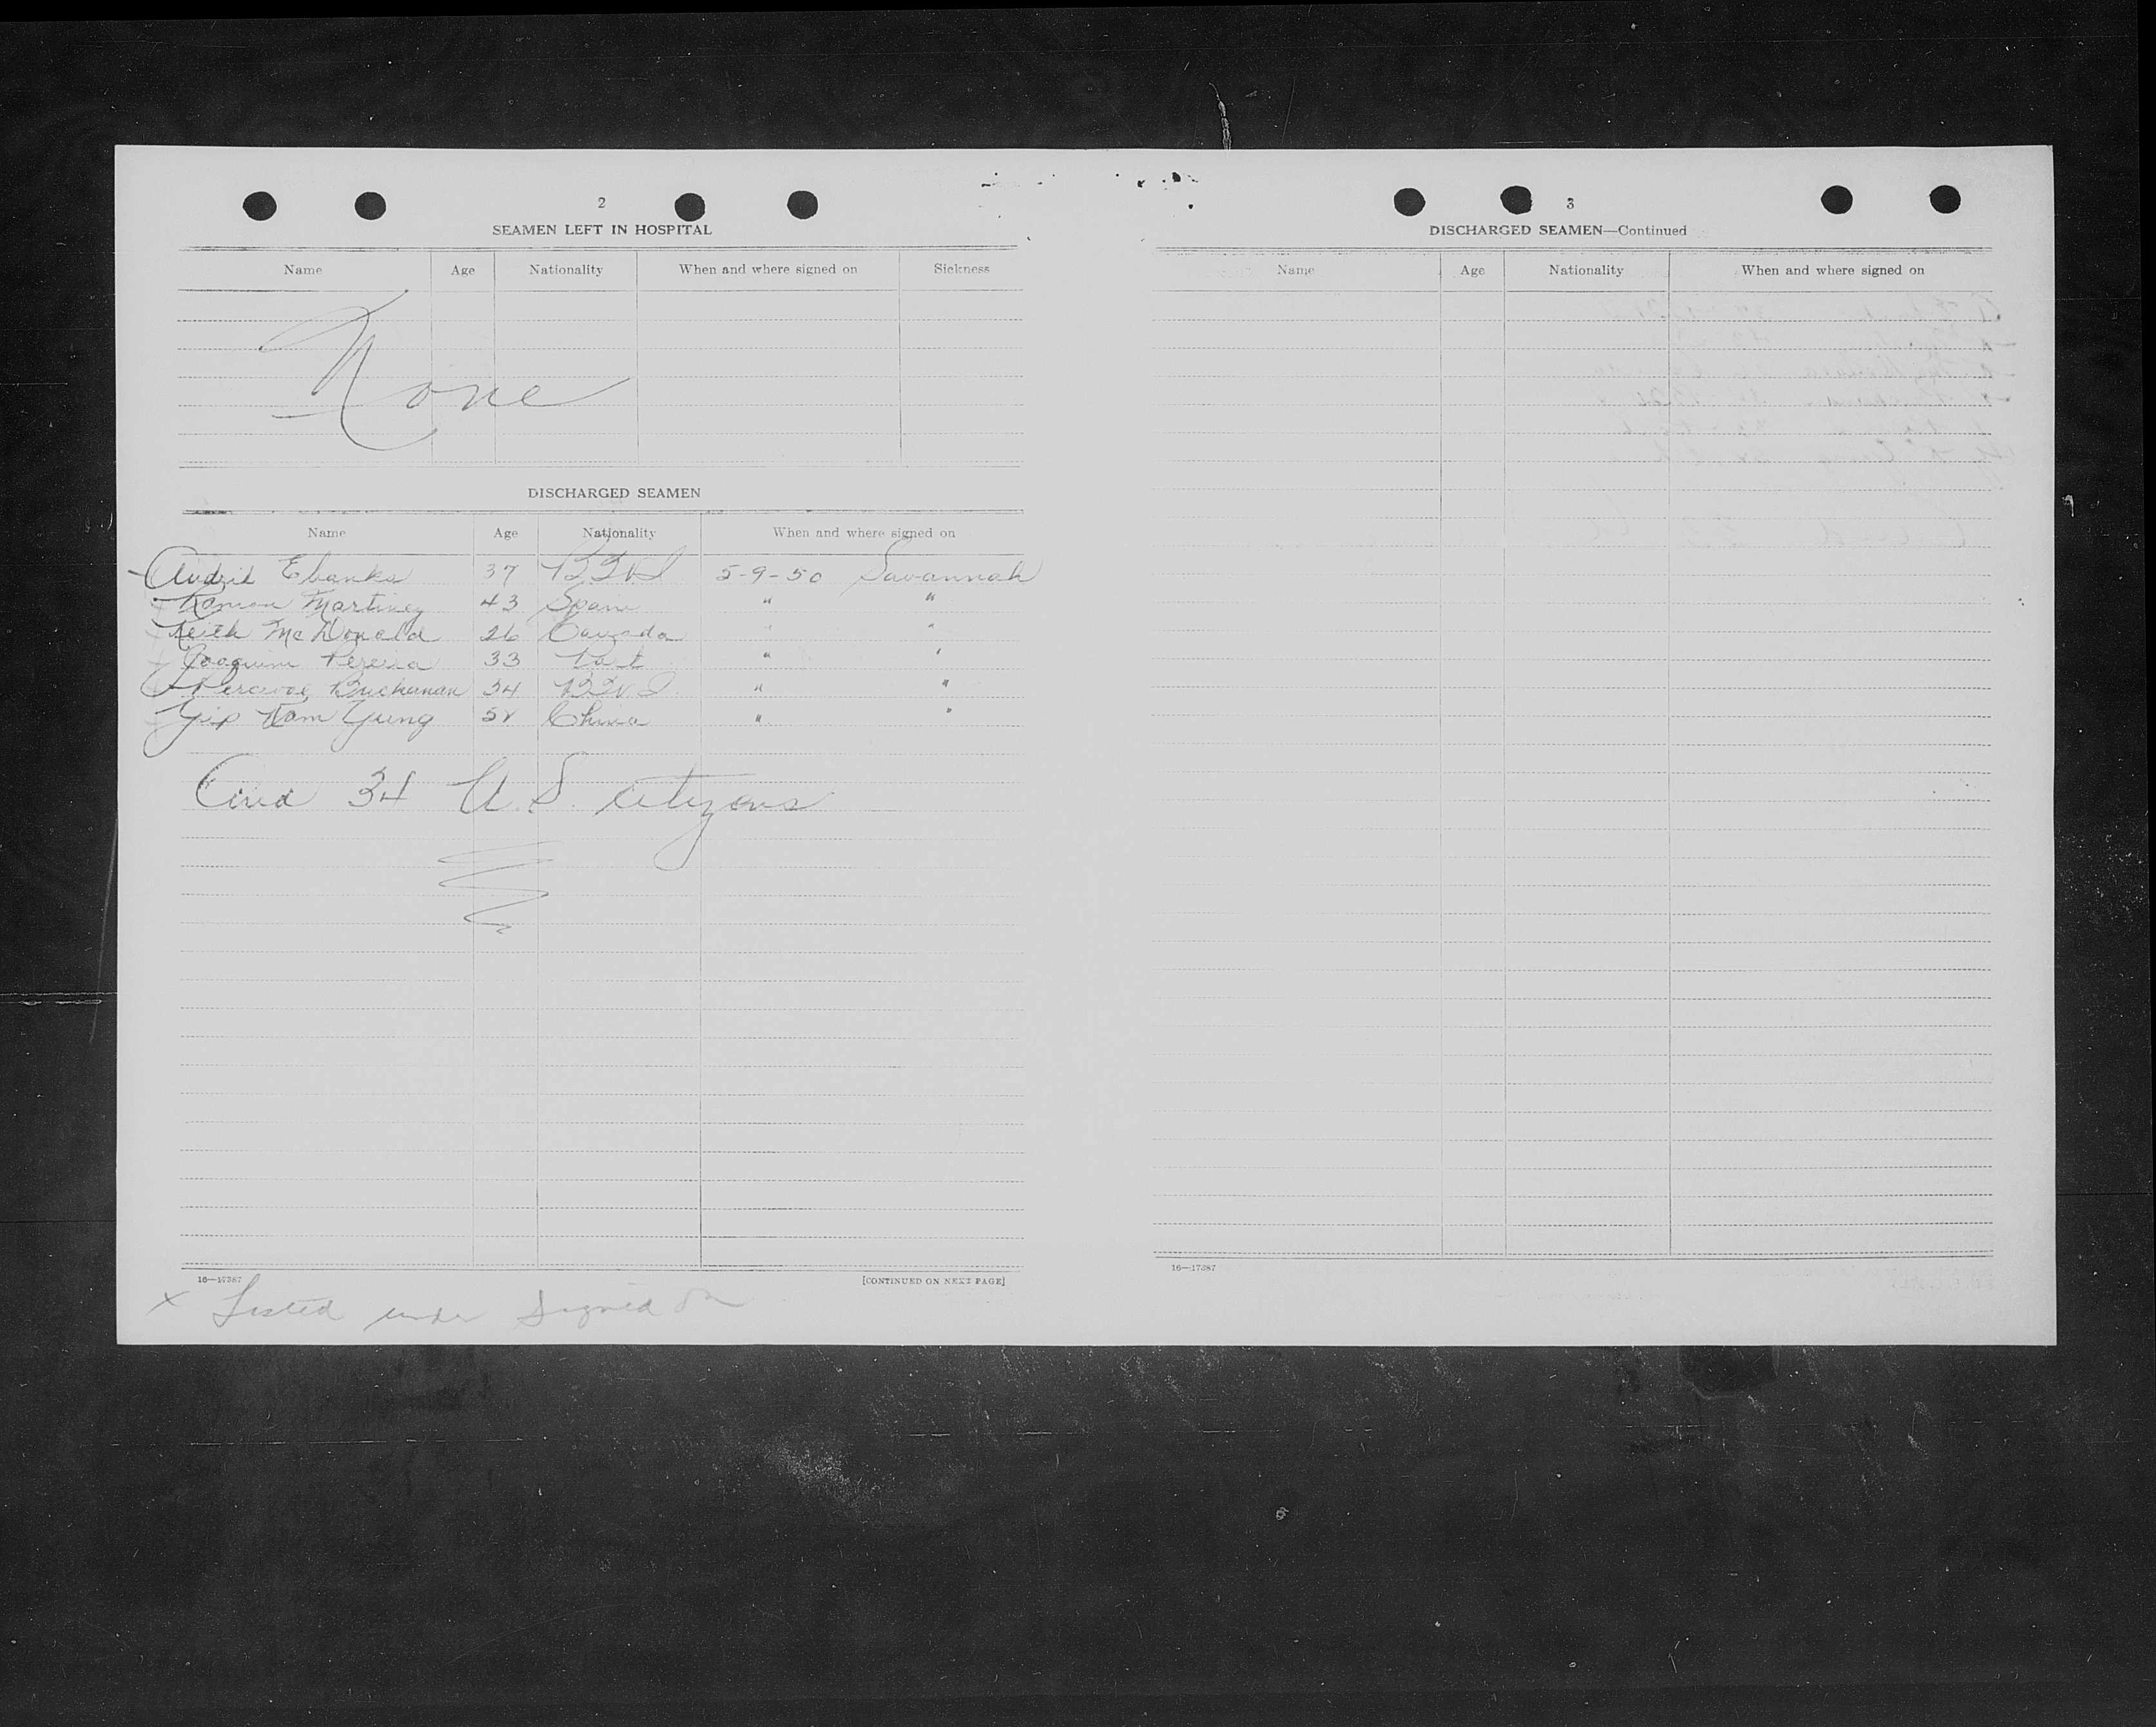 2
SEAMEN LEFT IN HOSPITAL
Name Age Nationality When and where signed on Sickness
None
DISCHARGED SEAMEN
Name Age Nationality When and where signed on
Audril Ebanks 37 B.W.I 5-9-50 Savannah
Ramon Martinez 43 Spain " "
Keith McDonald 26 Canada " "
Joaquim Pereira 33 Port " "
Percival Buchanan 34 BWI " "
Yip Kam Yung China " "
And 34 U.S. citizens
16—17387
[CONTINUED ON NEXT PAGE]
x Listed under Signed on
3
DISCHARGED SEAMEN—Continued
Name Age Nationality When and where signed on
16—17387